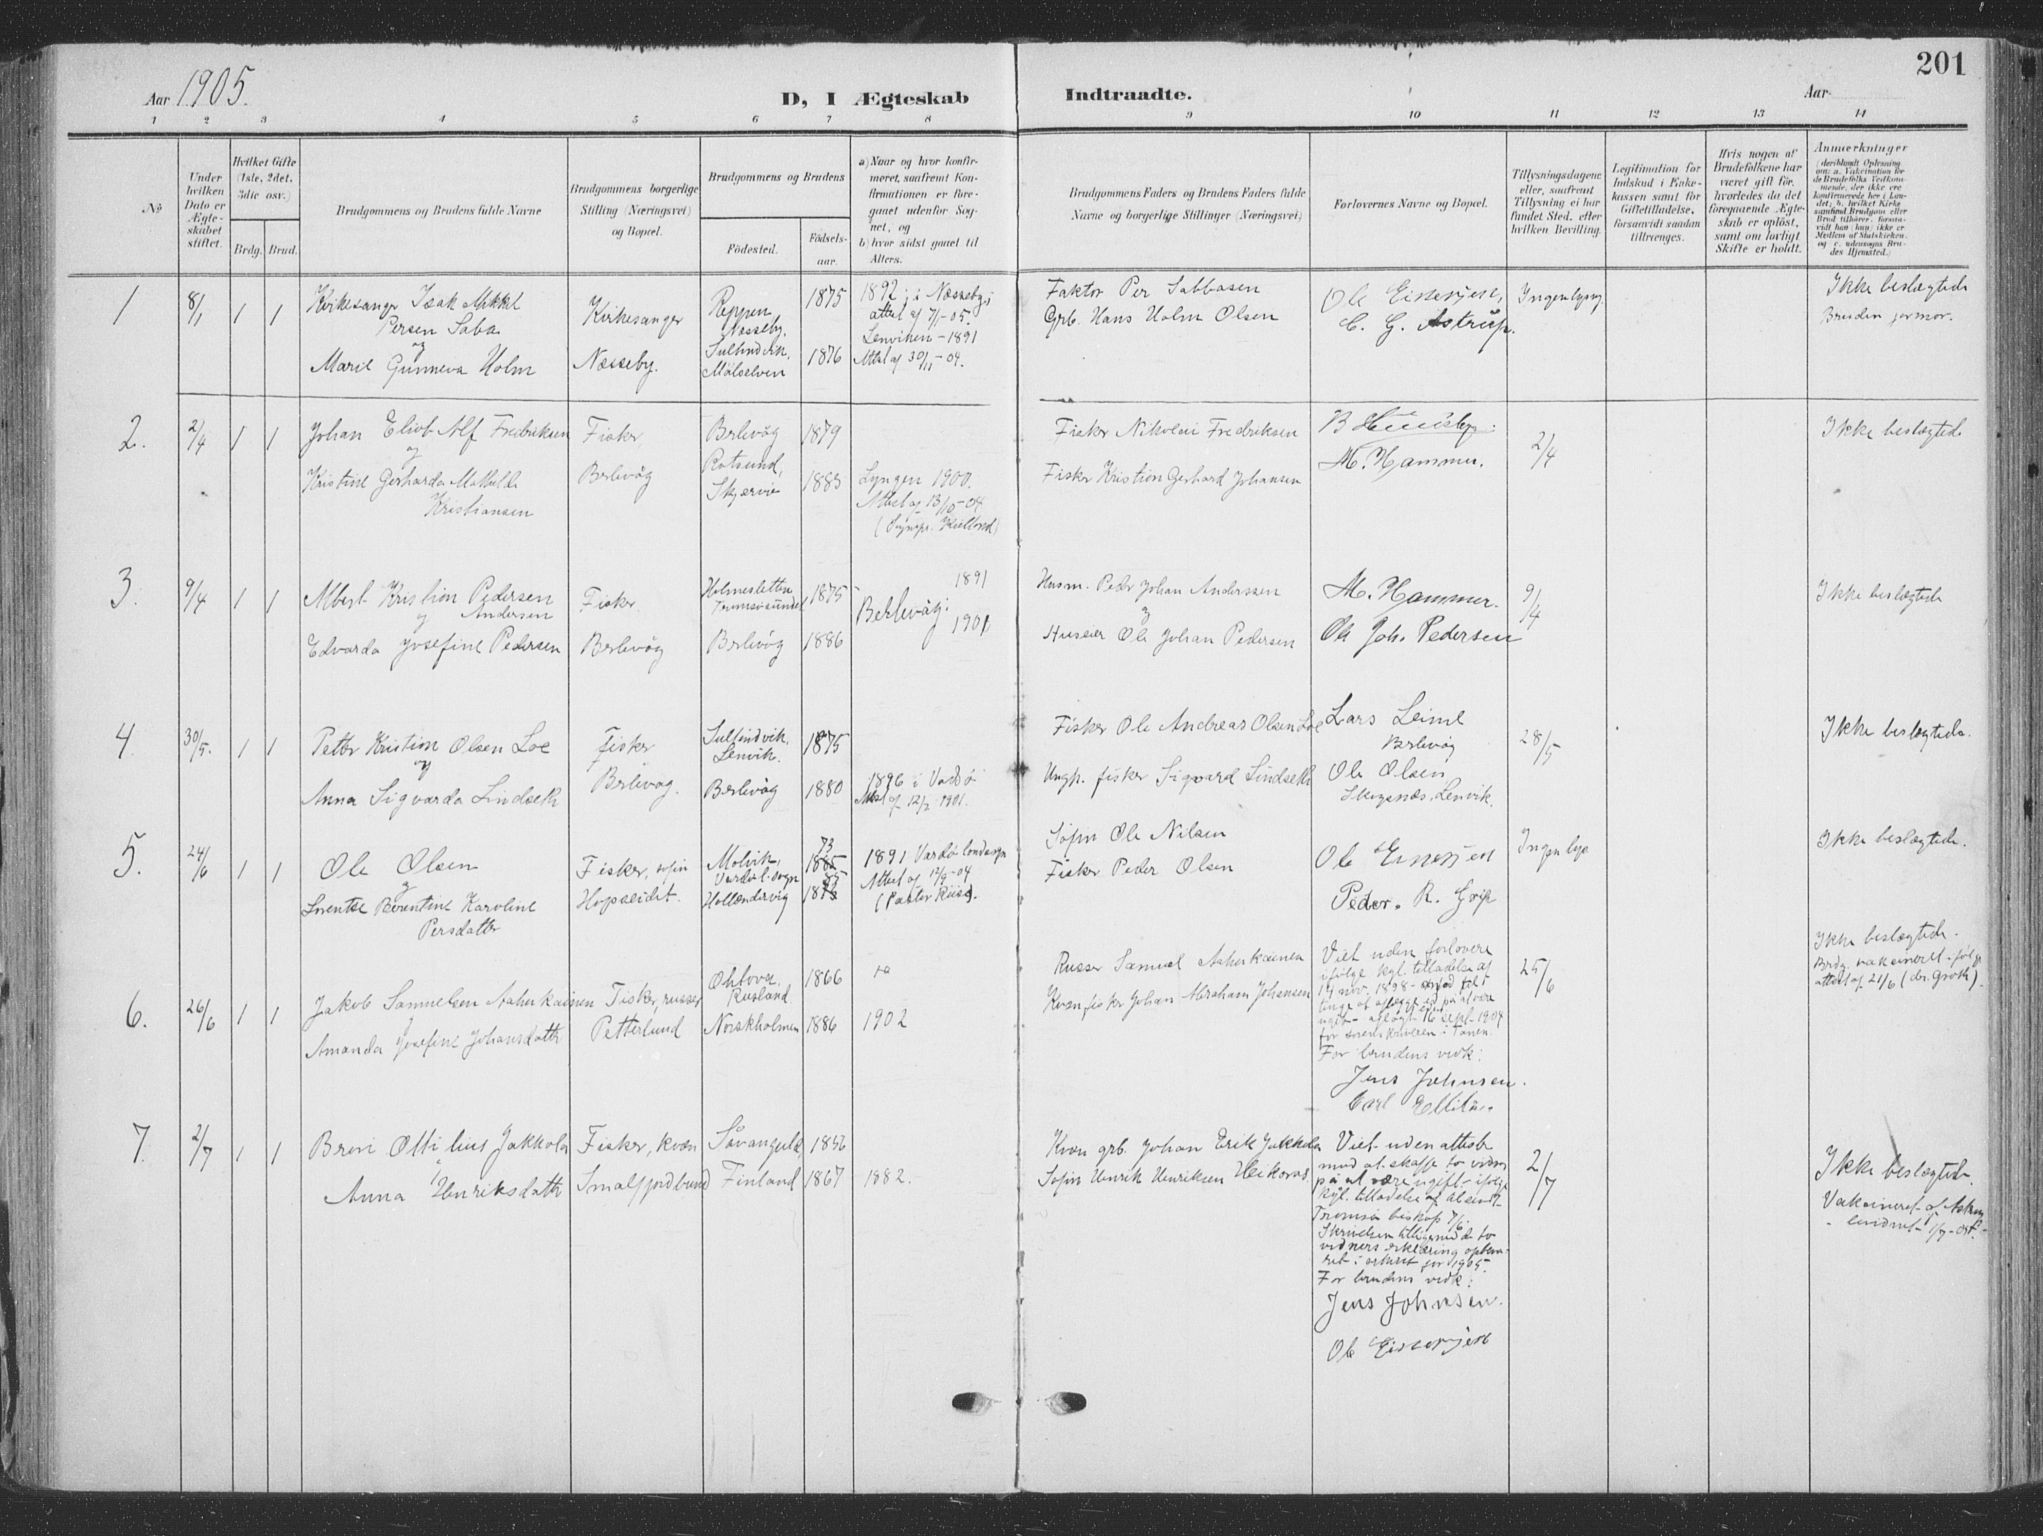 201
Aar 1905.
D, I Ægteskab Indtraadte.
Aar
1 2 3 4 5 6 7 8 9 10 11 12 13 14
№
Under hvilken Dato er Ægteskabet stiftet.
Hvilket Gifte (1ste, 2det, 3die osv.)
Brdg. Brud.
Brudgommens og Brudens fulde Navne
Brudgommens borgerlige Stilling (Næringsvei) og Bopæl.
Brudgommens og Brudens
Fødested.
Fødselsaar.
a) Naar og hvor konfirmeret, saafremt Konfirmationen er foregaaet udenfor Sognet, og
b) hvor sidst gaaet til Alters.
Brudgommens Faders og Brudens Faders fulde Navne og borgerlige Stillinger (Næringsvei)
Forlovernes Navne og Bopæl.
Tillysningsdagene eller, saafremt Tillysning ei har fundet Sted, efter hvilken Bevilling.
Legitimation for Indskud i Enkekassen samt for Giftetilladelse, forsaavidt saadan tiltrænges.
Hvis nogen af Brudefolkene har været gift før, hvorledes da det foregaaende Ægteskab er opløst, samt om lovligt Skifte er holdt.
Anmærkninger
1 8/1 1 1
Kirkesanger Isak Mikkel
Persen Saba
og
Marie Gunneva Holm
Kirkesanger
Næsseby.
Reppen
Næsseby.
Målselven
1875
1876
1892 i Næsseby;
attest af 7/1-05.
Lenviken - 1891
Attest af 30/11-04.
Faktor Per Sabbasen
Grb. Hans Holm Olsen
Ole Eisenjen,
C. G. Astrup.
Ingen lysng
Ikke beslægtede
2. 2/4 1 1
Johan Eliot Alf Fredriksen
og
Kristine Gerharda Mathilde
Kristiansen
Fisker
Berlevåg
Berlevåg
Rotsund,
Skjervø
1879
1885
Lyngen 1900.
Attest af 13/10-04
Fisker Nikolai Fredriksen
Fisker Kristian Gerhard Johansen
M. Hammer.
2/4
Ikke beslægtede
3. 9/4 1 1
Albert Kristian Pedersen
og Andersen
Edvarda Josefine Pedersen
Fisker.
Berlevåg
Holmesletten
Tromsøsundet
Berlevåg
1875
1886
1891
Berlevåg:
1901
Husm. Peder Johan Anderssen
og
Huseier Ole Johan Pedersen
M. Hammer.
Ole Joh. Pedersen
9/4
Ikke beslægtede
4. 30/5. 1 1
Petter Kristian Olsen Loe
og
Anna Sigvarda Lindseth
Fisker
Berlevåg.
Lenvik.
Berlevåg
1875
1880
1896 i Vardø
Attest af 12/2 1901.
Fisker Ole Andreas Olsen Loe
Ungk. fisker Sigvard Lindseth
Lars Leine
Berlevåg
Ole Olsen
Lenvik.
28/5
Ikke beslægtede.
5. 24/6 1 1
Ole Olsen
og
Lorentse Berntine Karoline
Persdatter
Fisker, søfin
Hopseidet.
Molvik,
Vardø l. sogn
Hollendervig
73
1885
85
1873
1891 Vardø landsogn
Attest af 12/9-04
Søfin Ole Nilsen
Fisker Peder Olsen
Ole Eisenjen
Peder. R. Grip
Ingen lys
Ikke beslægtede.
6. 26/6 1 1
Jakob Samuelsen Aaherkainen
og
Amanda Josefine Johansdatter
Fisker, russer
Petterlund
Rusland
Norskholmen
1866
1886
1902
Russer Samuel Aaherkainen
Kvæn fisker Johan Abraham Johansen
Viet uden forlovere
ifølge kgl. tilladelse af
14 nov. 1898
16 sept. 1904
for sorenskriveren i Tanen.
For brudens vedk:
Jens Johnsen.
Carl
25/6
Ikke beslægtede.
Brdg. vakcineret ifølge
attest af 21/6 (dr. Groth).
7. 2/7 1 1
Breri Ottilius Jakkola
Anna Henriksdatter
Fisker, kvæn
Smalfjordbund
Finland
1856
1867
1882.
Kvæn grb. Johan Erik Jakkola
Søfin Henrik Henriksen
Viet uden attest
med at skaffe to vidner
på at være ugift ifølge
kgl. tilladelse af
Tromsø biskop 7/6.
Skrivelsen tilligemed de to
vidners erklæring opbeva-
ret i arkivet for 1905.
For brudens vedk:
Jens Johnsen.
Ole Eisenjen
2/7
Ikke beslægtede.
Vakcineret